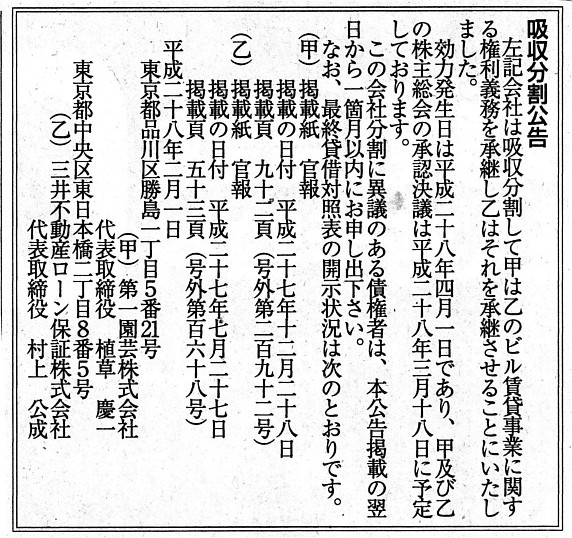 吸収分割公告
左記会社は吸収分割して甲は乙のビル賃貸事業に関す
る権利義務を承継し乙はそれを承継させることにいたし
ました。
効力発生日は平成二十八年四月一日であり、甲及び乙
の株主総会の承認決議は平成二十八年三月十八日に予定
しております。
この会社分割に異議のある債権者は、本公告掲載の翌
日から一箇月以内にお申し出下さい。
なお、最終貸借対照表の開示状況は次のとおりです。
(甲)掲載紙 官報
掲載の日付 平成二十七年十二月二十八日
掲載頁 九十二頁(号外第二百九十二号)
(乙)掲載紙 官報
掲載の日付 平成二十七年七月二十七日
掲載頁 五十三頁(号外第百六十八号)
平成二十八年二月一日
東京都品川区勝島一丁目5番21号
(甲)第一園芸株式会社
代表取締役 植草 慶一
東京都中央区東日本橋二丁目8番5号
(乙)三井不動産ローン保証株式会社
代表取締役 村上 公成